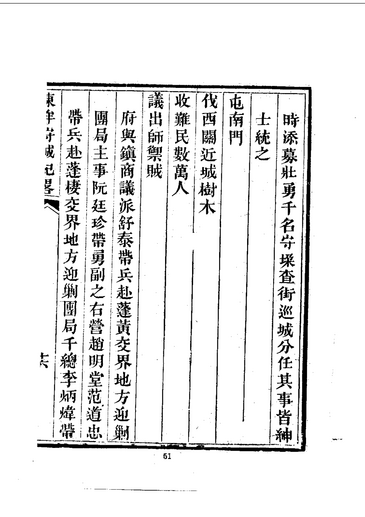 時添募壯勇千名守垜查街巡城分任其事皆紳
士統之
屯南門
伐西關近城樹木
收難民數萬人
議出師禦賊
府與鎮商議派舒泰帶兵赴蓬黃交界地方迎剿
團局主事阮廷珍帶勇副之右營趙明堂范道忠
帶兵赴蓬棲交界地方迎剿團局千總李炳煒帶
東牟守城紀畧
十六
61